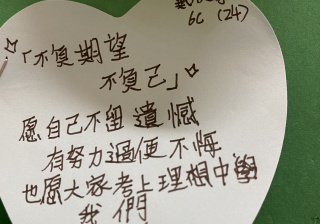 6C (24)
「不負期望
不負己」
愿自己不留遺憾
有努力過便不悔
也愿大家考上理想中學
我們